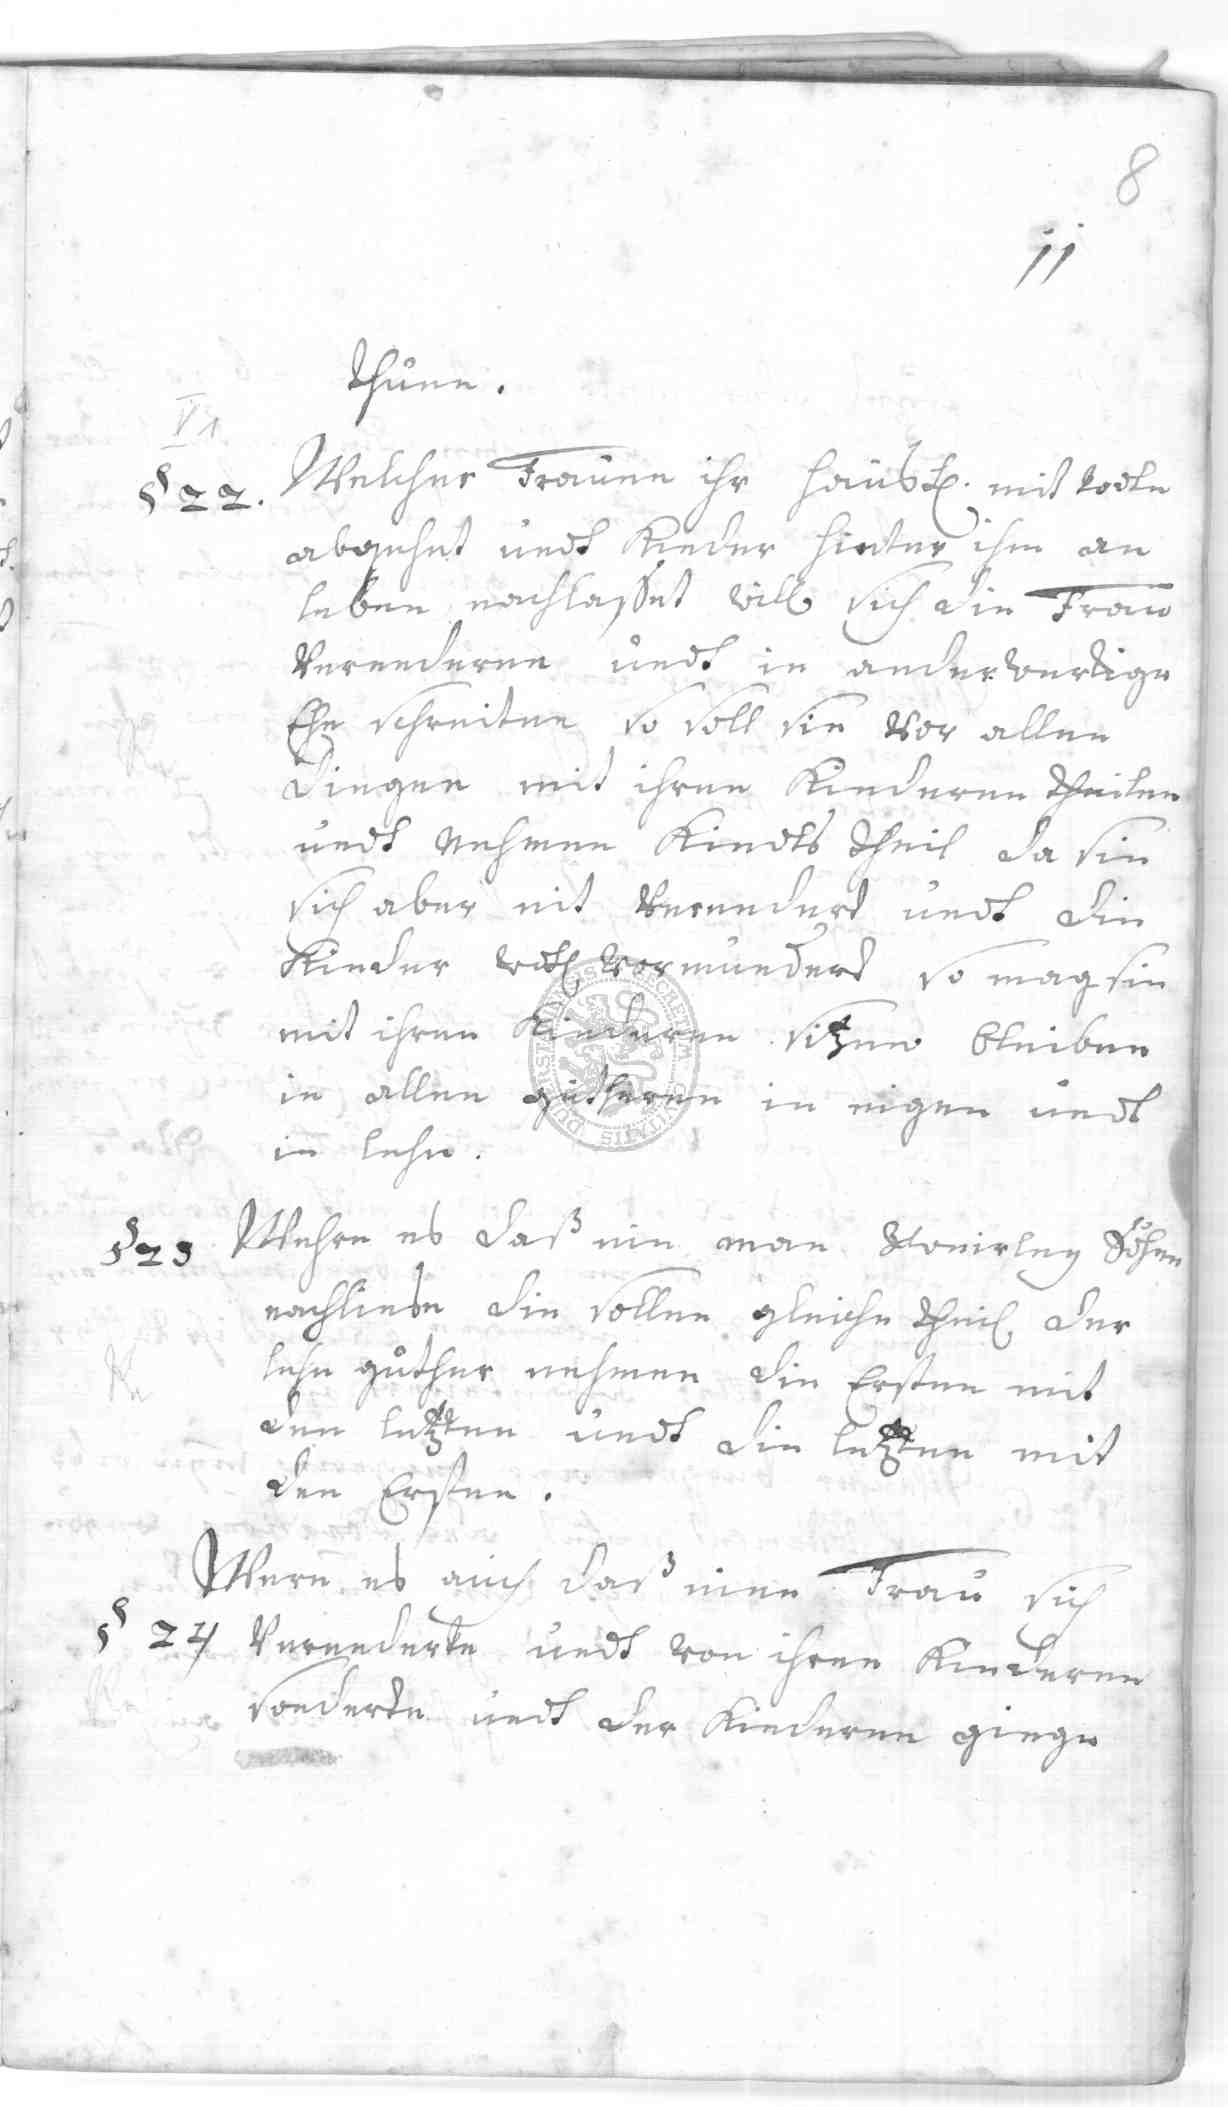 8
11
thuen.
VI
§ 22. Welcher Frauen ihr haußh. mit todte
abgehet undt Kinder hinter ihm an
leben nachlasset will sich die Frau
Verenderen undt in anderwertige
Ehe schreiten so soll sie vor allen
dingen mit ihren Kinderen theilen
undt nehmen Kindts theil da sie
sich aber nit Verendert undt die
Kinder vormundert so mag sie
mit ihren Kinderen sitzen bleiben
in allen gutheren in eigen undt
in lehn.
§ 23 Wehre es daß ein man söhne
nachliese die sollen gleiche theil der
lehn güther nehmen die Ersten mit
den letzten undt die letzten mit
den Ersten.
Were es auch daß eine Frau sich
§ 24 Verenderte undt von ihren Kinderen
sonderte undt der Kinderen ginge